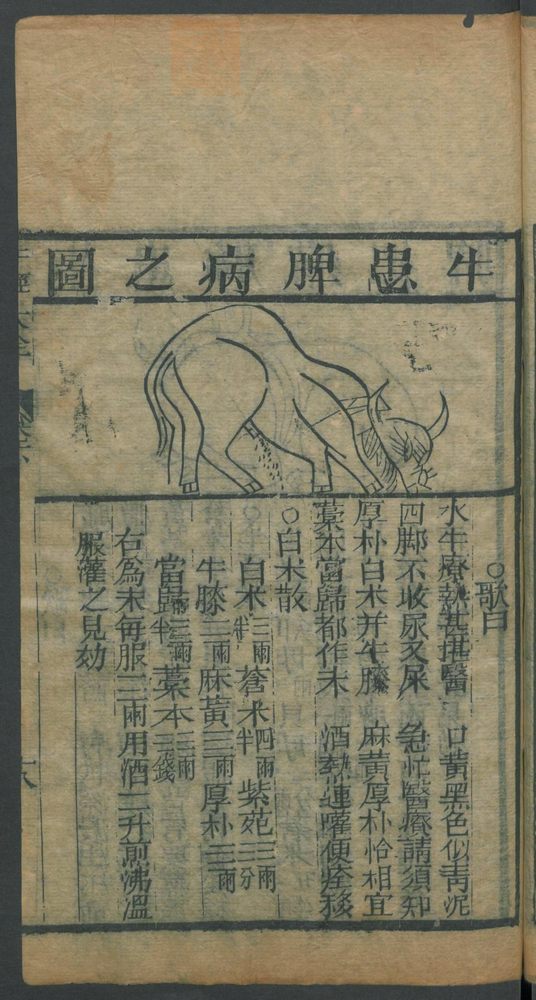 牛患脾病之圖
○歌曰
水牛療熱甚堪醫　口黃黑色似青泥
四脚不收尿又屎　急忙醫療請須知
厚朴白术并牛膝　麻黃厚朴恰相宜
藁本當歸都作末　酒熱連嚾便痊移
○白术散
白术三兩半　蒼术四兩半　紫苑三兩三分
牛膝二兩　麻黃三兩　厚朴三兩
當歸三兩半　藁本三兩三錢
右為末每服二兩用酒二升煎沸溫
服灌之見効